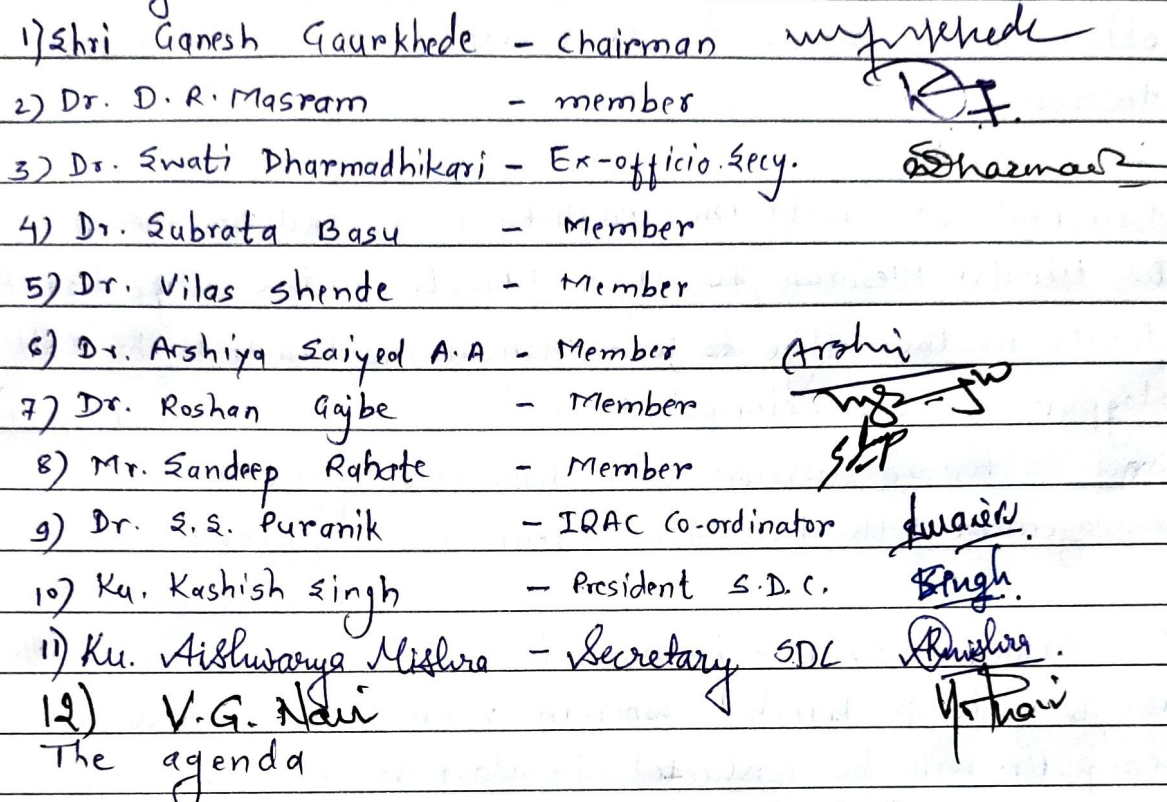 1) Shri Ganesh Gaurkhede - Chairman
2) Dr. D. R. Masram - member
3) Dr. Swati Dharmadhikari - Ex-officio. Secy.
4) Dr. Subrata Basu - Member
5) Dr. Vilas Shende - Member
6) Dr Arshiya Saiyed A.A - Member Arshi
7) Dr. Roshan Gajbe - Member
8) Mr. Sandeep Rahate - Member
9) Dr. S. S. Puranik - IQAC Co-ordinator
10) Ku. Kashish Singh - President S.D.C. Singh.
11) Ku. Aishwarya Mishra - Secretary SDC Amishra.
12) V.G. Nair
The agenda